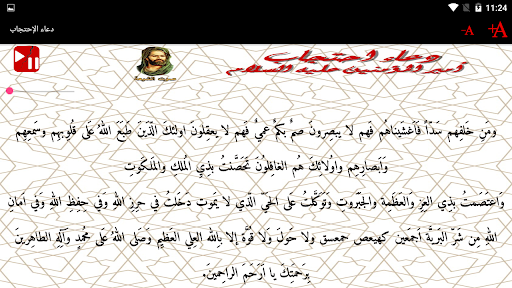 11:24
دعاء الإحتجاب
-A
+A
دعاء احتجاب
أمير المؤمنين عليه السلام
ومَنِ خَلفِهِم سَدّاً فَاَغشَيناهُم فَهِم لا يبصِرونَ صمٌ بكمٌ عميٌ فَهم لا يعقلونَ اولئكَ الَّذَينَ طَبَعَ اللهُ عَلى قُلوبِهِم وسَمعِهِم
وَاَبصارِهِم واولائكَ هُم الغافِلونَ تَحَصَّنتُ بِذِي المُلكِ والمَلَكوتِ
وَاعتَصَمتُ بِذي العِزِ وَالعَظَمة والجَبَروتِ وَتَوَكَّلتُ عَلى الحَيِّ الَّذي لا يَموت دَخَلتُ في حِرزِ اللهِ وَفي حِفِظِ اللهِ وَفي اَمانِ
اللهِ مِن شَرِّ البَريَّةِ اَجمَعين كهيعص حمعسق ولا حَولَ وَلا قُوَّة إلا باللهِ العلي العَظيمِ وَصَلى اللهُ عَلى مُحمَدٍ وَآلِهِ الطاهِرينَ
بِرَحمَتِكَ يا اَرَحَم الراحِمينَ.